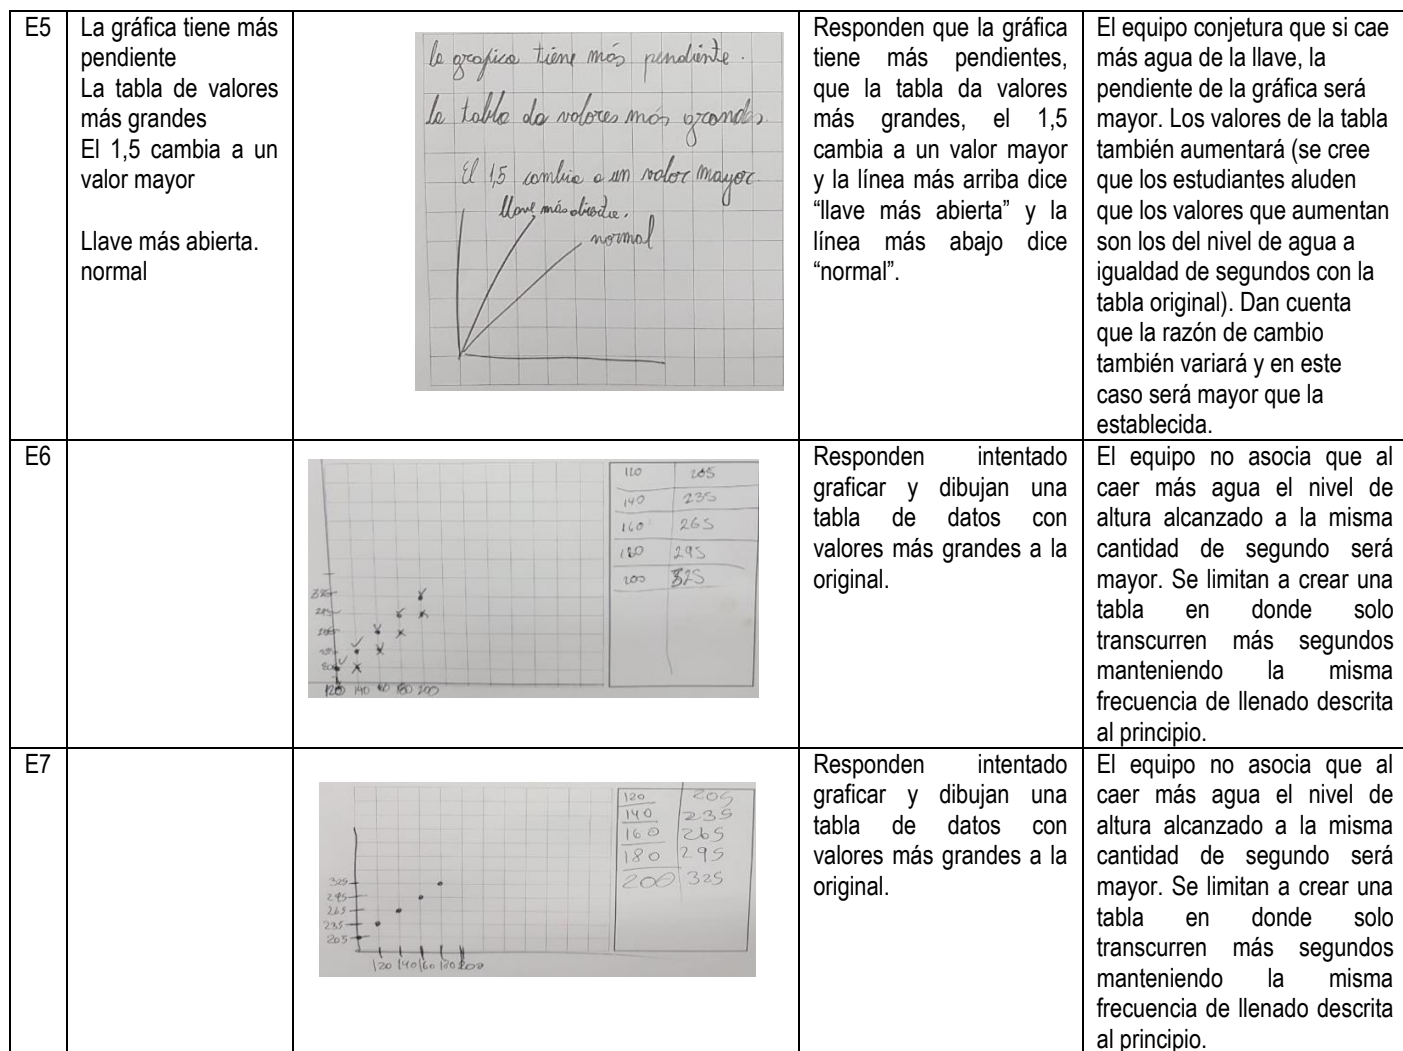 E5
La gráfica tiene más
pendiente
La tabla de valores
más grandes
El 1,5 cambia a un
valor mayor
Llave más abierta.
normal
la grafica tiene más pendiente.
la tabla da valores más grandes.
El 1,5 cambia a un valor mayor
llave más abierta.
normal
Responden que la gráfica
tiene más pendientes,
que la tabla da valores
más grandes, el 1,5
cambia a un valor mayor
y la línea más arriba dice
“llave más abierta” y la
línea más abajo dice
“normal”.
El equipo conjetura que si cae
más agua de la llave, la
pendiente de la gráfica será
mayor. Los valores de la tabla
también aumentará (se cree
que los estudiantes aluden
que los valores que aumentan
son los del nivel de agua a
igualdad de segundos con la
tabla original). Dan cuenta
que la razón de cambio
también variará y en este
caso será mayor que la
establecida.
E6
120 205
140 235
160 265
180 295
200 325
295
120 140 160 180 200
Responden intentado
graficar y dibujan una
tabla de datos con
valores más grandes a la
original.
El equipo no asocia que al
caer más agua el nivel de
altura alcanzado a la misma
cantidad de segundo será
mayor. Se limitan a crear una
tabla en donde solo
transcurren más segundos
manteniendo la misma
frecuencia de llenado descrita
al principio.
E7
120 205
140 235
160 265
180 295
200 325
325
295
265
235
205
120 140 160 180 200
Responden intentado
graficar y dibujan una
tabla de datos con
valores más grandes a la
original.
El equipo no asocia que al
caer más agua el nivel de
altura alcanzado a la misma
cantidad de segundo será
mayor. Se limitan a crear una
tabla en donde solo
transcurren más segundos
manteniendo la misma
frecuencia de llenado descrita
al principio.